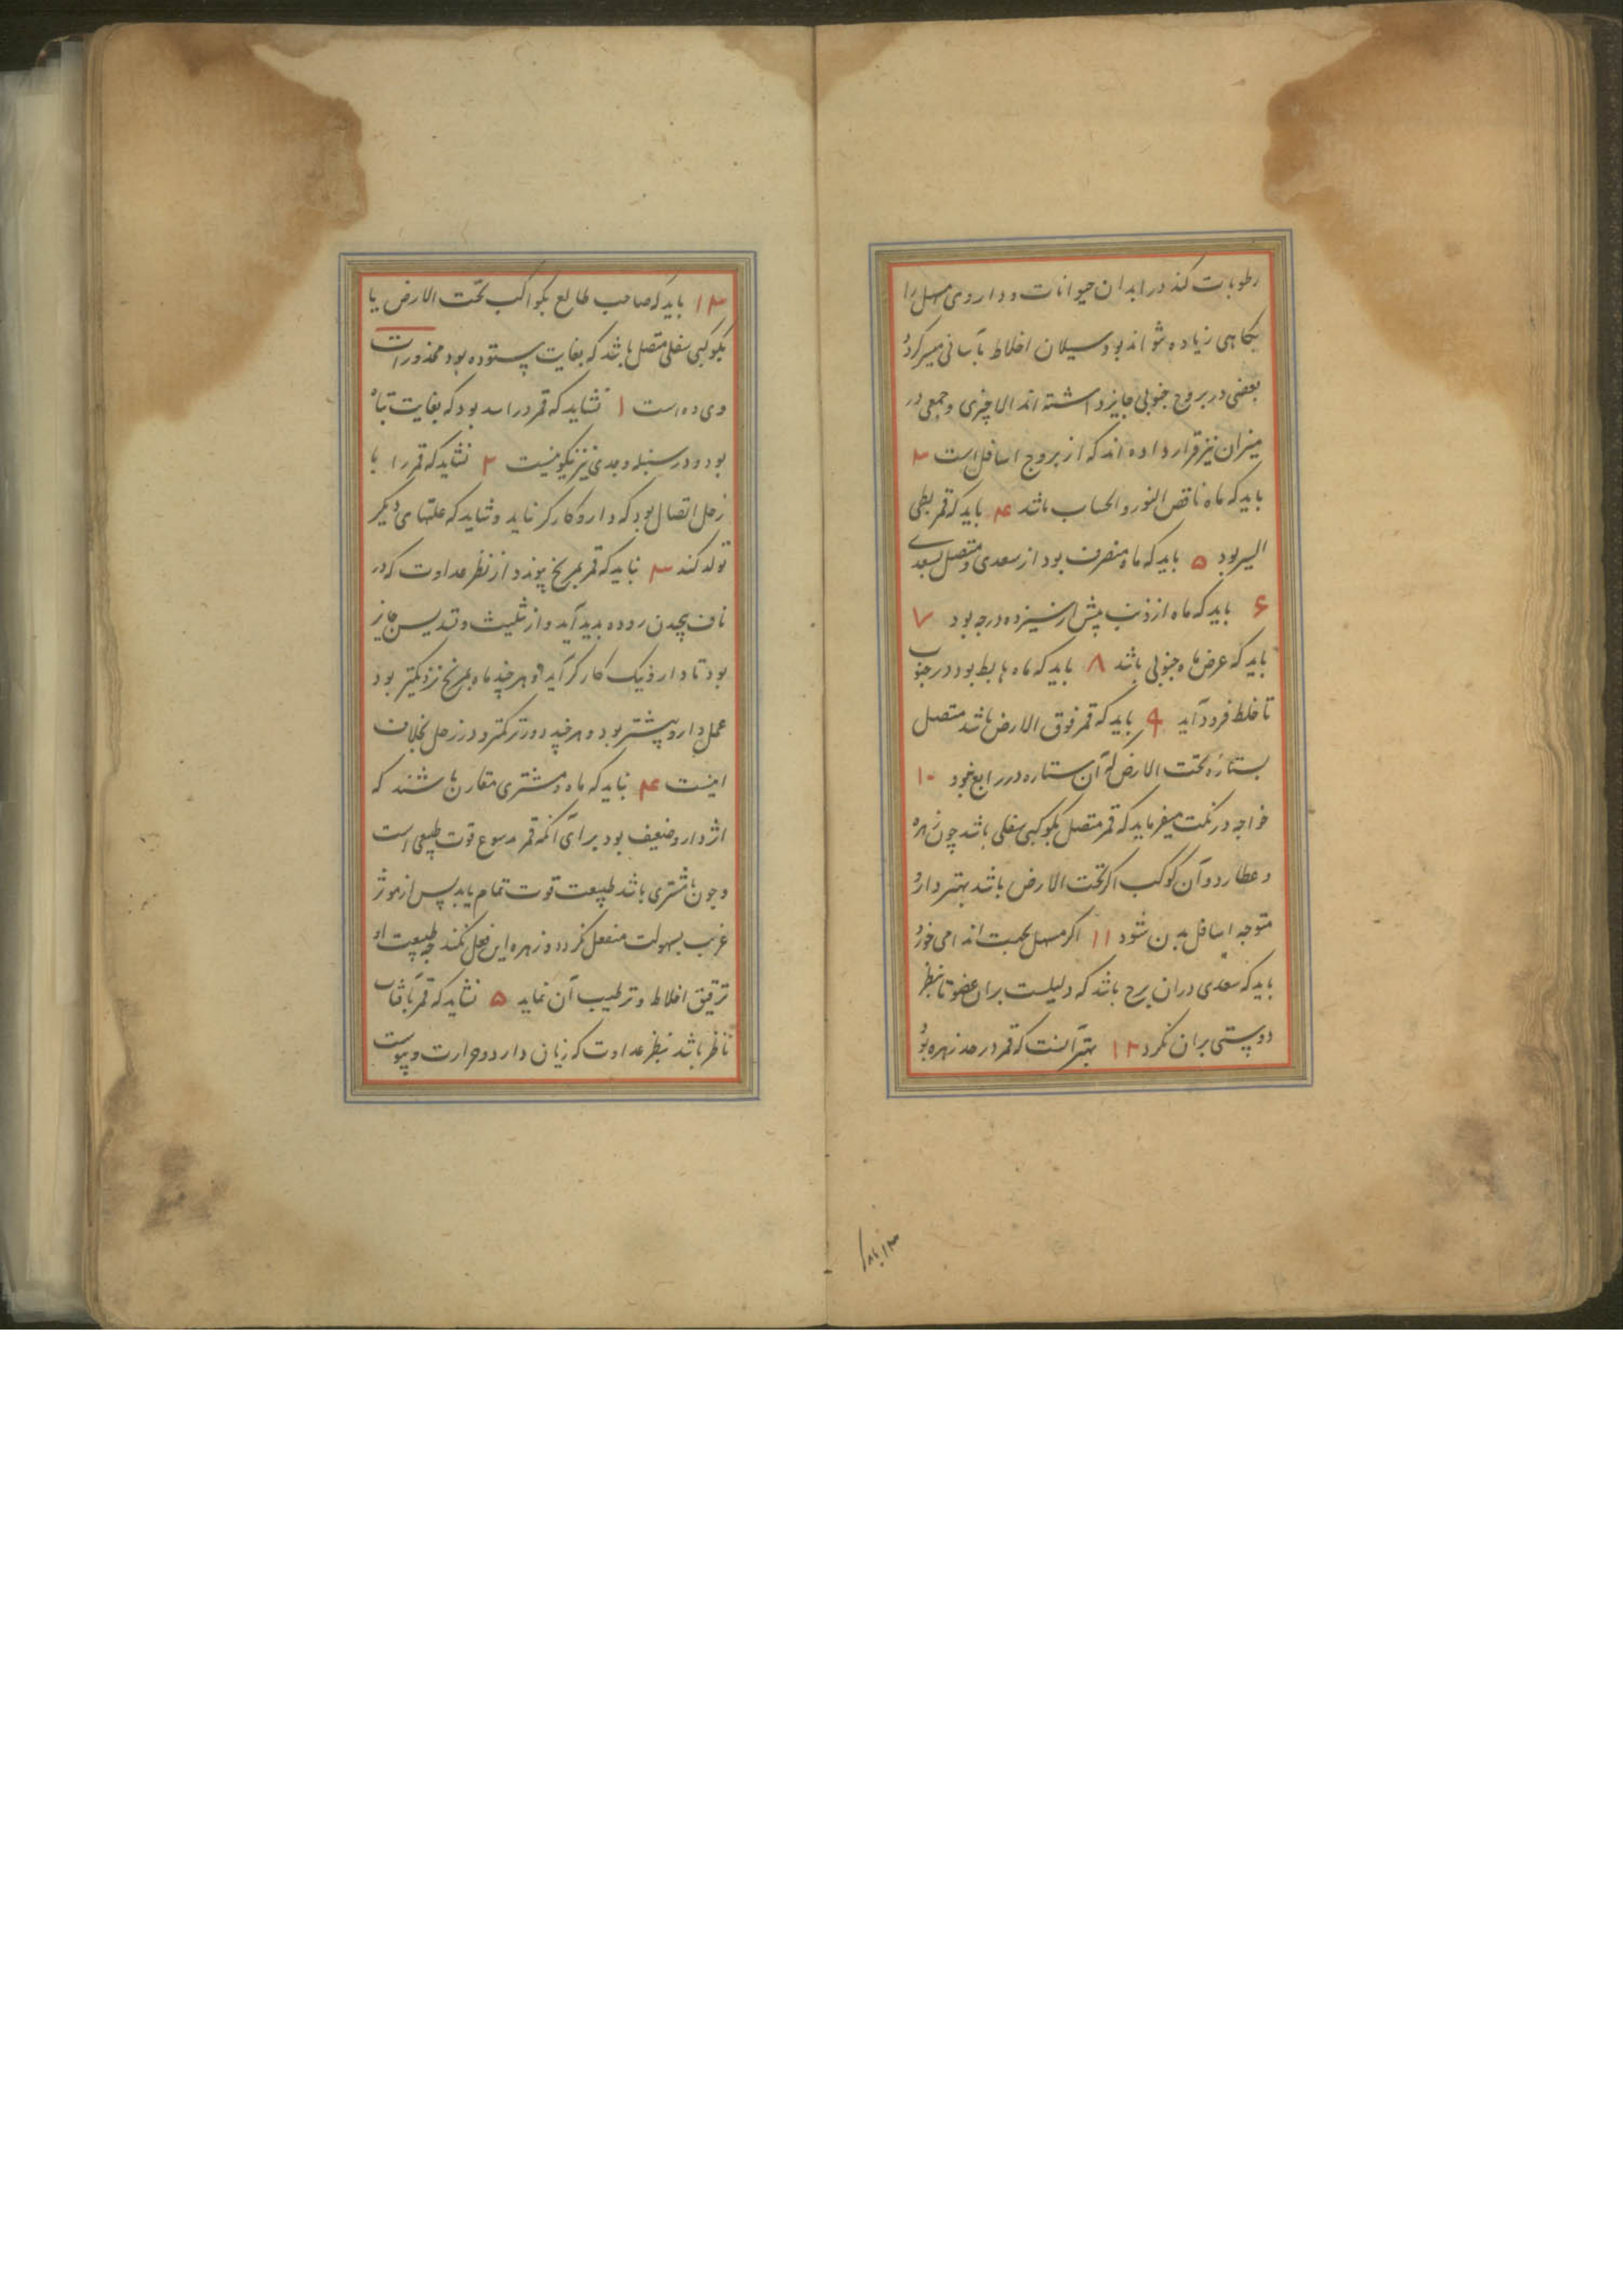 رطوبات کند در ابدان حیوانات و داروی مسهل را
بکاهی زیاده نتواند بود و سیلان اخلاط بآسانی میسر کردد
بعضی در بروج جنوبی جایز داشته اند الا جدی و جمعی در
میزان نیز قرار داده اند که از بروج اسافل است ۳
باید که ماه ناقص النور و الحساب باشد ۴ باید که قمر بطی
السیر بود ۵ باید که ماه منصرف بود از سعدی و متصل بسعدی
۶ باید که ماه از ذنب پیش از سیزده درجه بود ۷
باید که عرض ماه جنوبی باشد ۸ باید که ماه هابط بود در جنوب
تا خلط فرود آید ۹ باید که قمر فوق الارض باشد متصل
بستارهٔ تحت الارض که آن ستاره در رابع بود ۱۰
خواجه در نکت میفرماید که قمر متصل بکوکبی سفلی باشد چون زهره
و عطارد و آن کوکب اکر تحت الارض باشد بهتر دارو
متوجه اسافل بدن شود ۱۱ اکر مسهل بجهت اندامی خورد
باید که سعدی دران برج باشد که دلیلست بران عضو تا بنظر
دوستی بران نکرد ۱۲ بهتر آنست که قمر در حد زهره بود
۱۳ باید که صاحب طالع بکواکب تحت الارض یا
بکوکبی سفلی متصل باشد که بغایت ستوده بود محذورات
وی ده است ۱ نشاید که قمر در اسد بود که بغایت تباه
بود و در سنبله و جدی نیز نیکو نیست ۲ نشاید که قمر را با
زحل اتصال بود که دارو کارکر نیاید و شاید که علتهای دیکر
تولد کند ۳ نباید که قمر بمریخ پیوندد از نظر عداوت که در
ناف پیچدن روده بدید آید و از تثلیث و تسدیس جایز
بود تا دارو نیک کارکر آید و هر چند ماه بمریخ نزدیکتر بود
عمل دارو بیشتر بود و هر چند دورتر کمتر و در زحل بخلاف
اینست ۴ نباید که ماه و مشتری مقارن باشند که
اثر دارو ضعیف بود برای آنکه قمر قوت طبیعی است
و چون با مشتری باشد طبیعت قوت تمام یابد پس از موثر
غریب بسهولت منفعل نکردد و زهره این فعل نکند چه طبیعت او
ترقیق اخلاط و ترطیب آن نماید ۵ نشاید که قمر بآفتاب
ناظر باشد بنظر عداوت که زیان دارد و حرارت و یبوست
۱۳